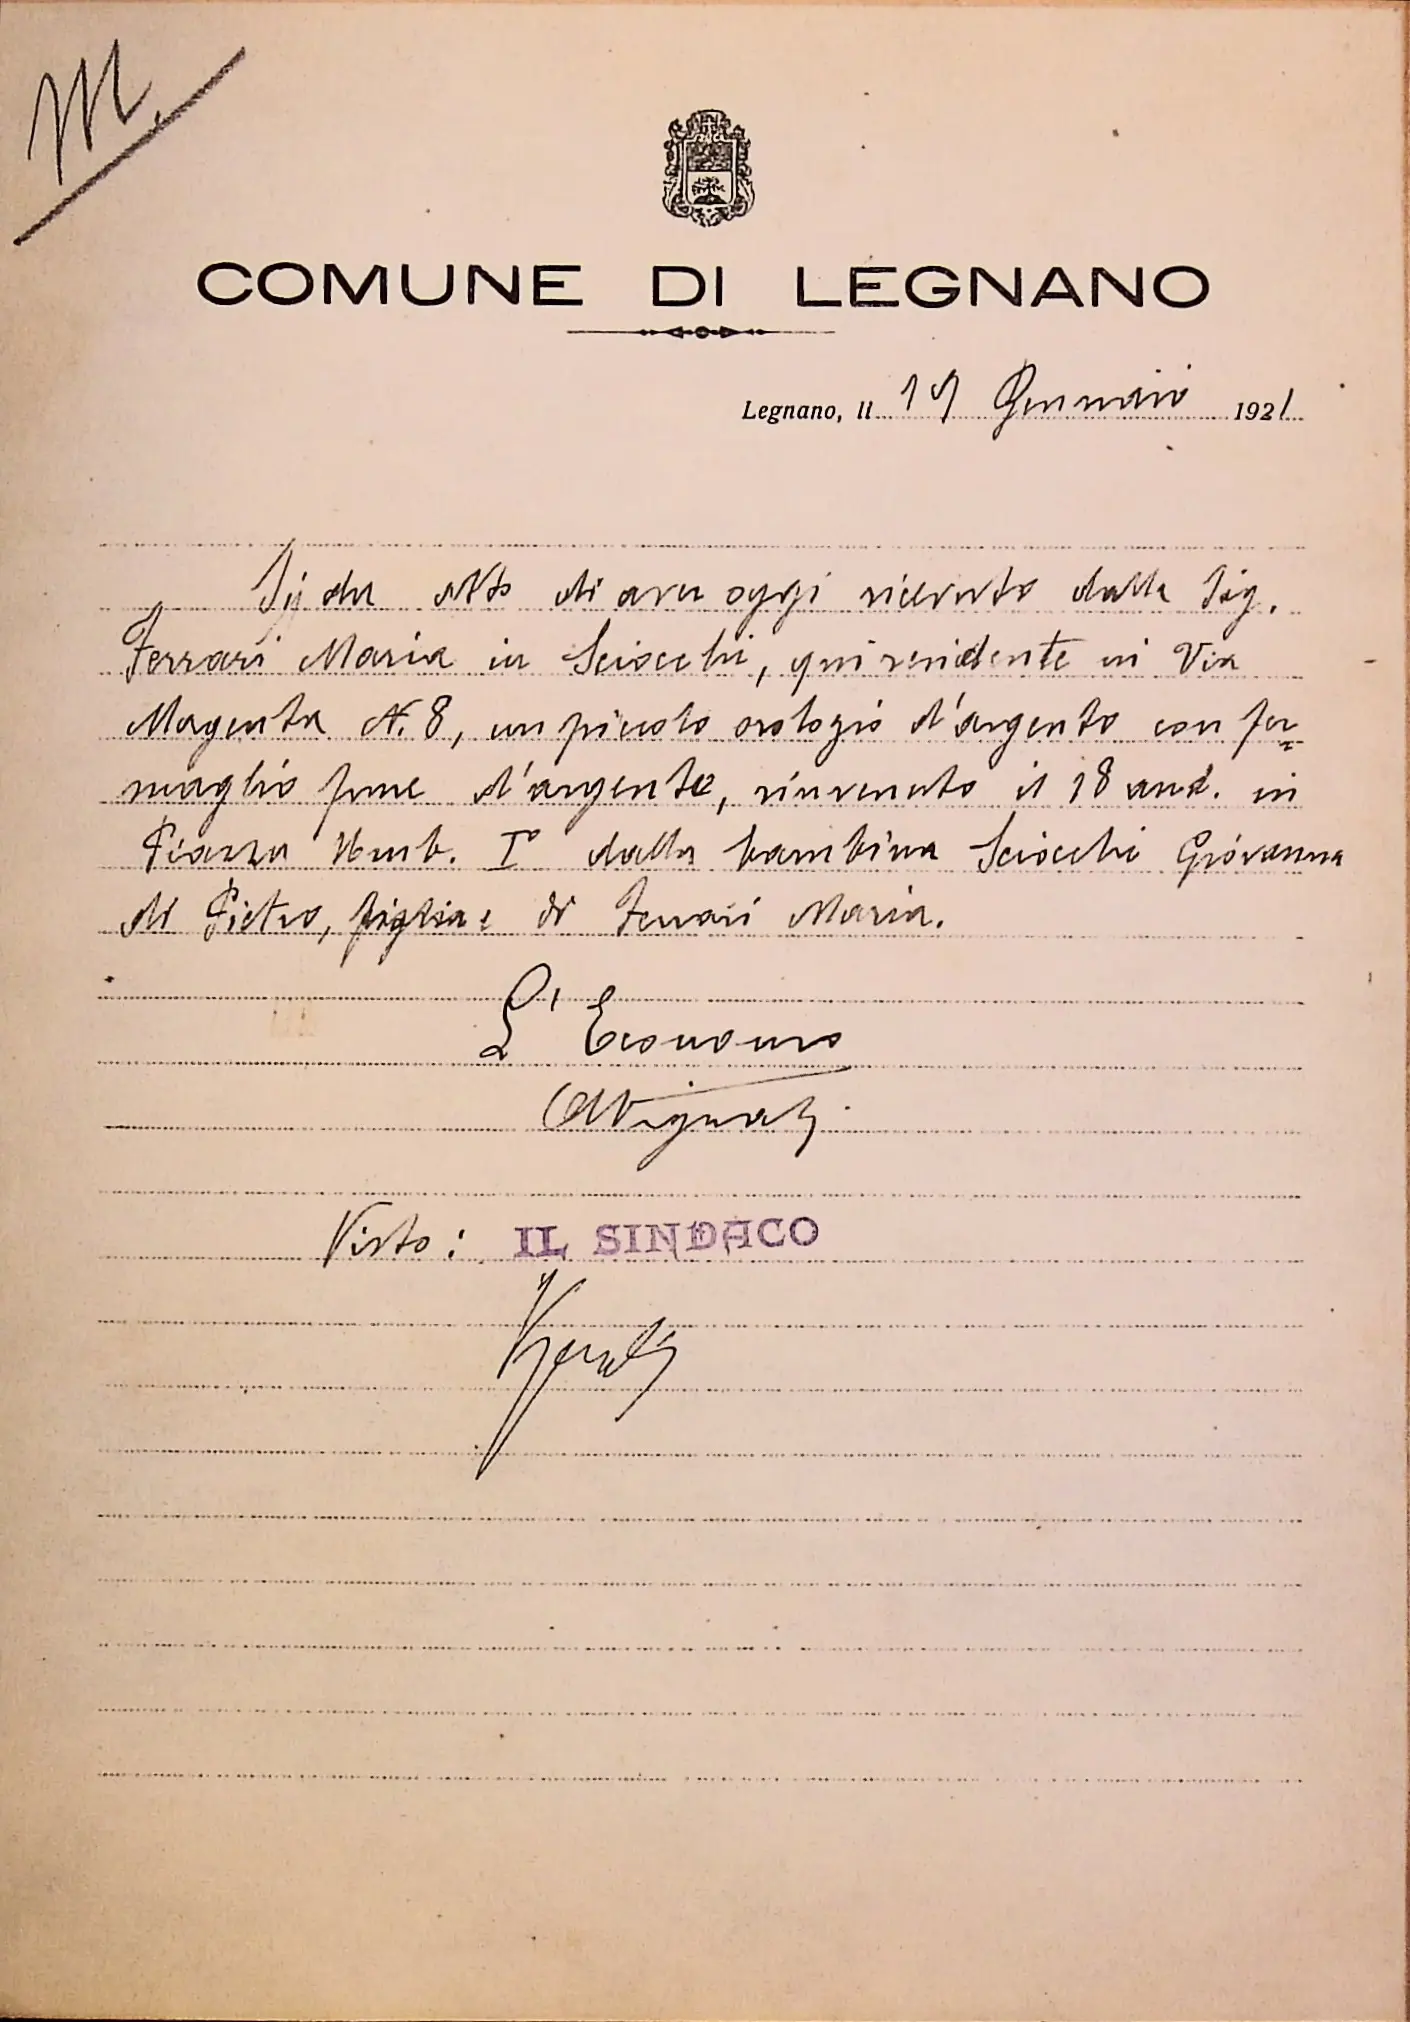 M.
COMUNE DI LEGNANO
Legnano, li 19 Gennaio 1921
Si da atto di aver oggi ricevuto dalla Sig.
Ferrari Maria in Sciocchi, qui residente in Via
Magenta N. 8, un piccolo orologio d'argento con fer-
maglio fune d'argento, rinvenuto il 18 and. in
Piazza Umb. I° dalla bambina Sciocchi Giovanna
di Pietro, figlia di Ferrari Maria.
L'Economo
Visto: IL SINDACO